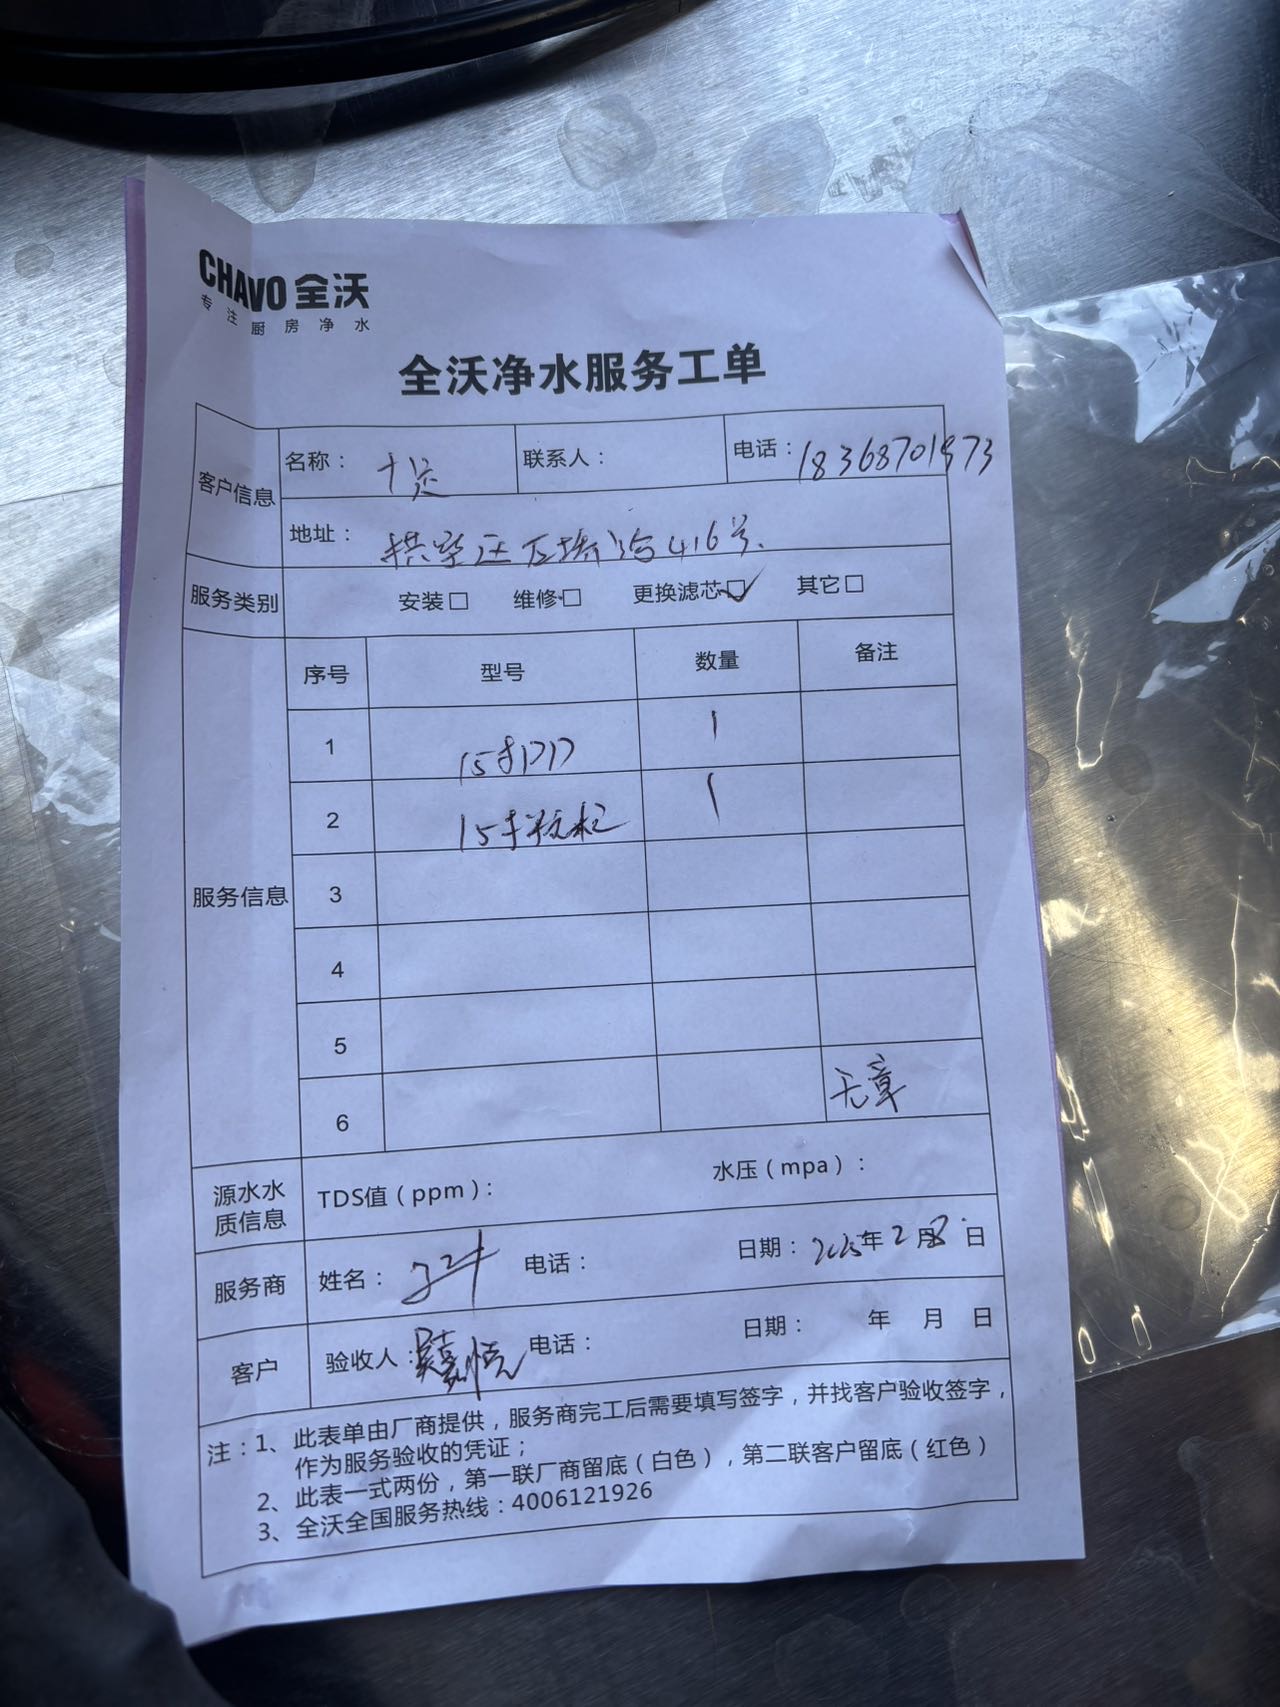 CHAVO 全沃
专注厨房净水
全沃净水服务工单
客户信息
名称： 联系人： 电话：18368701973
地址： 416号
服务类别 安装□ 维修□ 更换滤芯☑ 其它□
服务信息
序号 型号 数量 备注
1 15寸PP 1
2 15寸 1
3
4
5
6 无章
源水水质信息 TDS值（ppm）： 水压（mpa）：
服务商 姓名： 电话： 日期：2025年2月8日
客户 验收人： 电话： 日期： 年 月 日
注：1、此表单由厂商提供，服务商完工后需要填写签字，并找客户验收签字，
作为服务验收的凭证；
2、此表一式两份，第一联厂商留底（白色），第二联客户留底（红色）
3、全沃全国服务热线：4006121926